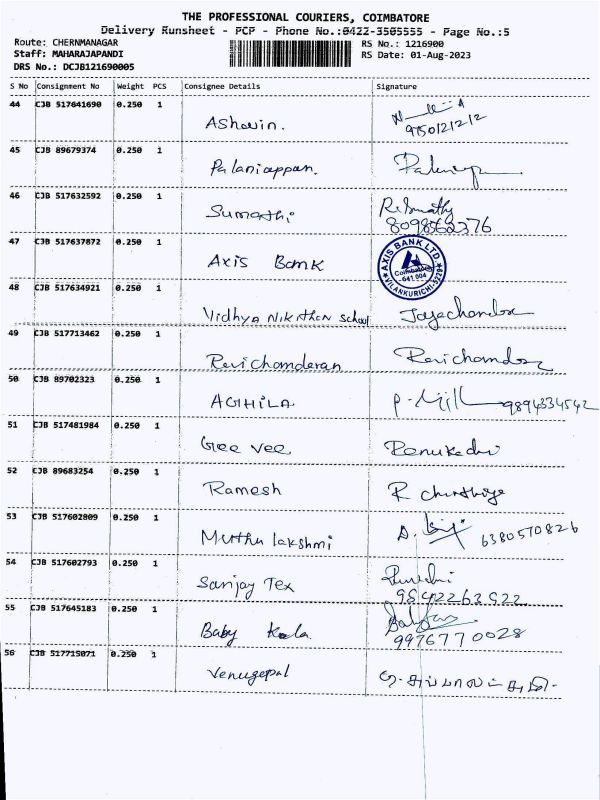 THE PROFESSIONAL COURIERS, COIMBATORE
Delivery Runsheet - PCP - Phone No.:0422-3505555 - Page No.:5
Route: CHERNMANAGAR RS No.: 1216900
Staff: MAHARAJAPANDI RS Date: 01-Aug-2023
DRS No.: DCJB121690005
S No Consignment No Weight PCS Consignee Details Signature
44 CJB 517641690 0.250 1
Ashwin. 9750121212
45 CJB 89679374 0.250 1
Palaniappan.
46 CJB 517632592 0.250 1
Sumathi
47 CJB 517637872 0.250 1
Axis Bank AXIS BANK LTD. Coimbatore 641 004
48 CJB 517634921 0.250 1
Vidhya Nikethan School Jayachandra
49 CJB 517713462 0.250 1
Ravichanderan Ravichandra
50 CJB 89702323 0.250 1
AGHILA 9894334542
51 CJB 517481984 0.250 1
Gree Vee Renukadevi
52 CJB 89683254 0.250 1
Ramesh R
53 CJB 517602809 0.250 1
Muthu lakshmi 6380570826
54 CJB 517602793 0.250 1
Sanjay Tex
9842263522
55 CJB 517645183 0.250 1
Baby Kala
9976770028
56 CJB 517715071 0.250 1
Venugopal